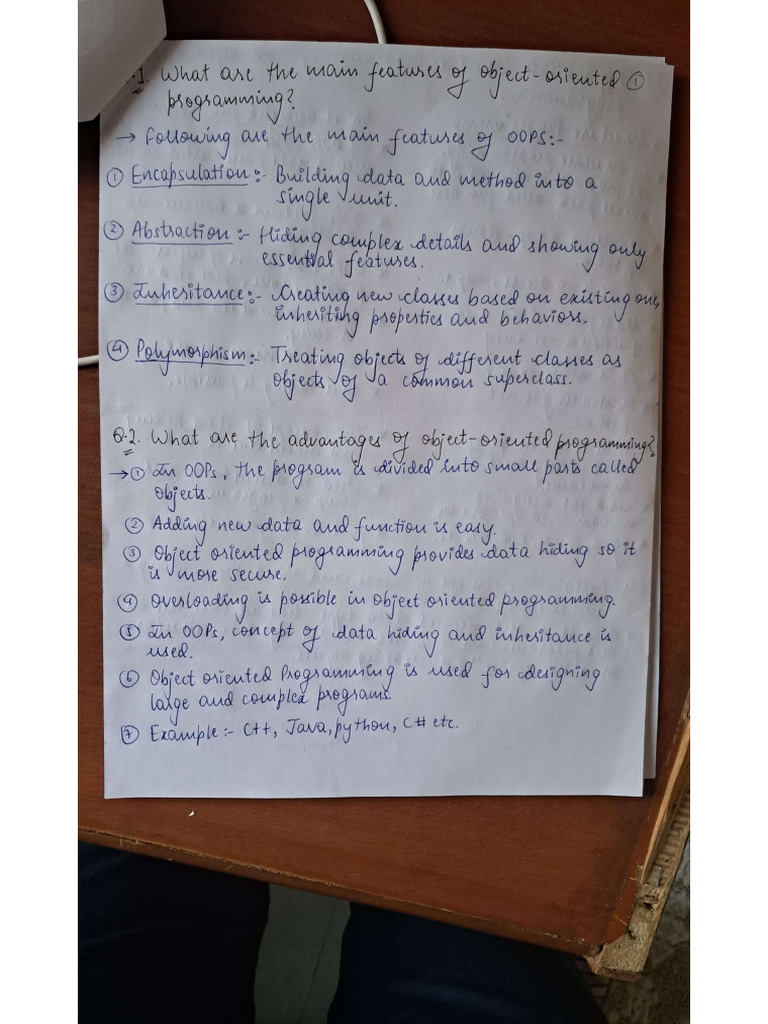 .1. What are the main features of object-oriented ①
programming?
→ Following are the main features of OOPS:-
① Encapsulation:- Building data and method into a
single unit.
② Abstraction:- Hiding complex details and showing only
essential features.
③ Inheritance:- Creating new classes based on existing one,
inheriting properties and behaviors.
④ Polymorphism:- Treating objects of different classes as
objects of a common superclass.
Q.2. What are the advantages of object-oriented programming?
→ ① In OOPs, the program is divided into small parts called
objects.
② Adding new data and function is easy.
③ Object oriented programming provides data hiding so it
is more secure.
④ Overloading is possible in object oriented programming.
⑤ In OOPs, concept of data hiding and inheritance is
used.
⑥ Object oriented Programming is used for designing
large and complex programs.
⑦ Example:- C++, Java, python, C# etc.